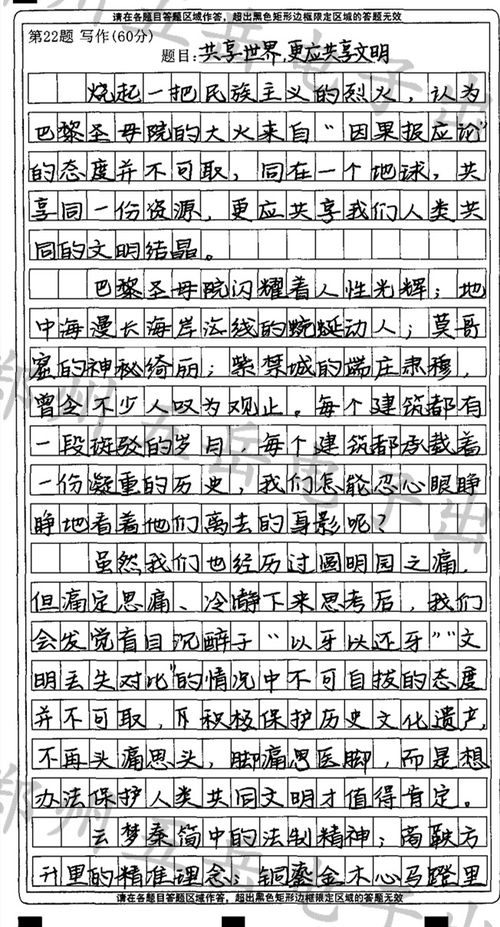 请在各题目答题区域作答，超出黑色矩形边框限定区域的答题无效
第22题 写作(60分)
题目:共享世界,更应共享文明
烧起一把民族主义的烈火，认为
巴黎圣母院的大火来自“因果报应论”
的态度并不可取，同在一个地球，共
享同一份资源，更应共享我们人类共
同的文明结晶。
巴黎圣母院闪耀着人性光辉；地
中海漫长海岸法线的蜿蜒动人；莫哥
窟的神秘绮丽；紫禁城的端庄肃穆，
曾令不少人叹为观止。每个建筑都有
一段斑驳的岁月，每个建筑都承载着
一份凝重的历史，我们怎能忍心眼睁
睁地看着他们离去的身影呢？
虽然我们也经历过圆明园之痛，
但痛定思痛、冷静下来思考后，我们
会发觉盲目沉醉于“以牙以还牙”“文
明丢失对比”的情况中不可自拔的态度
并不可取，积极保护历史文化遗产，
不再头痛思头，脚痛思医脚，而是想
办法保护人类共同文明才值得肯定。
云梦秦简中的法制精神；商鞅方
升里的精准理念；铜鎏金木心马蹬里
请在各题目答题区域作答，超出黑色矩形边框限定区域的答题无效
郑州五岳电子出
郑州五岳电子出